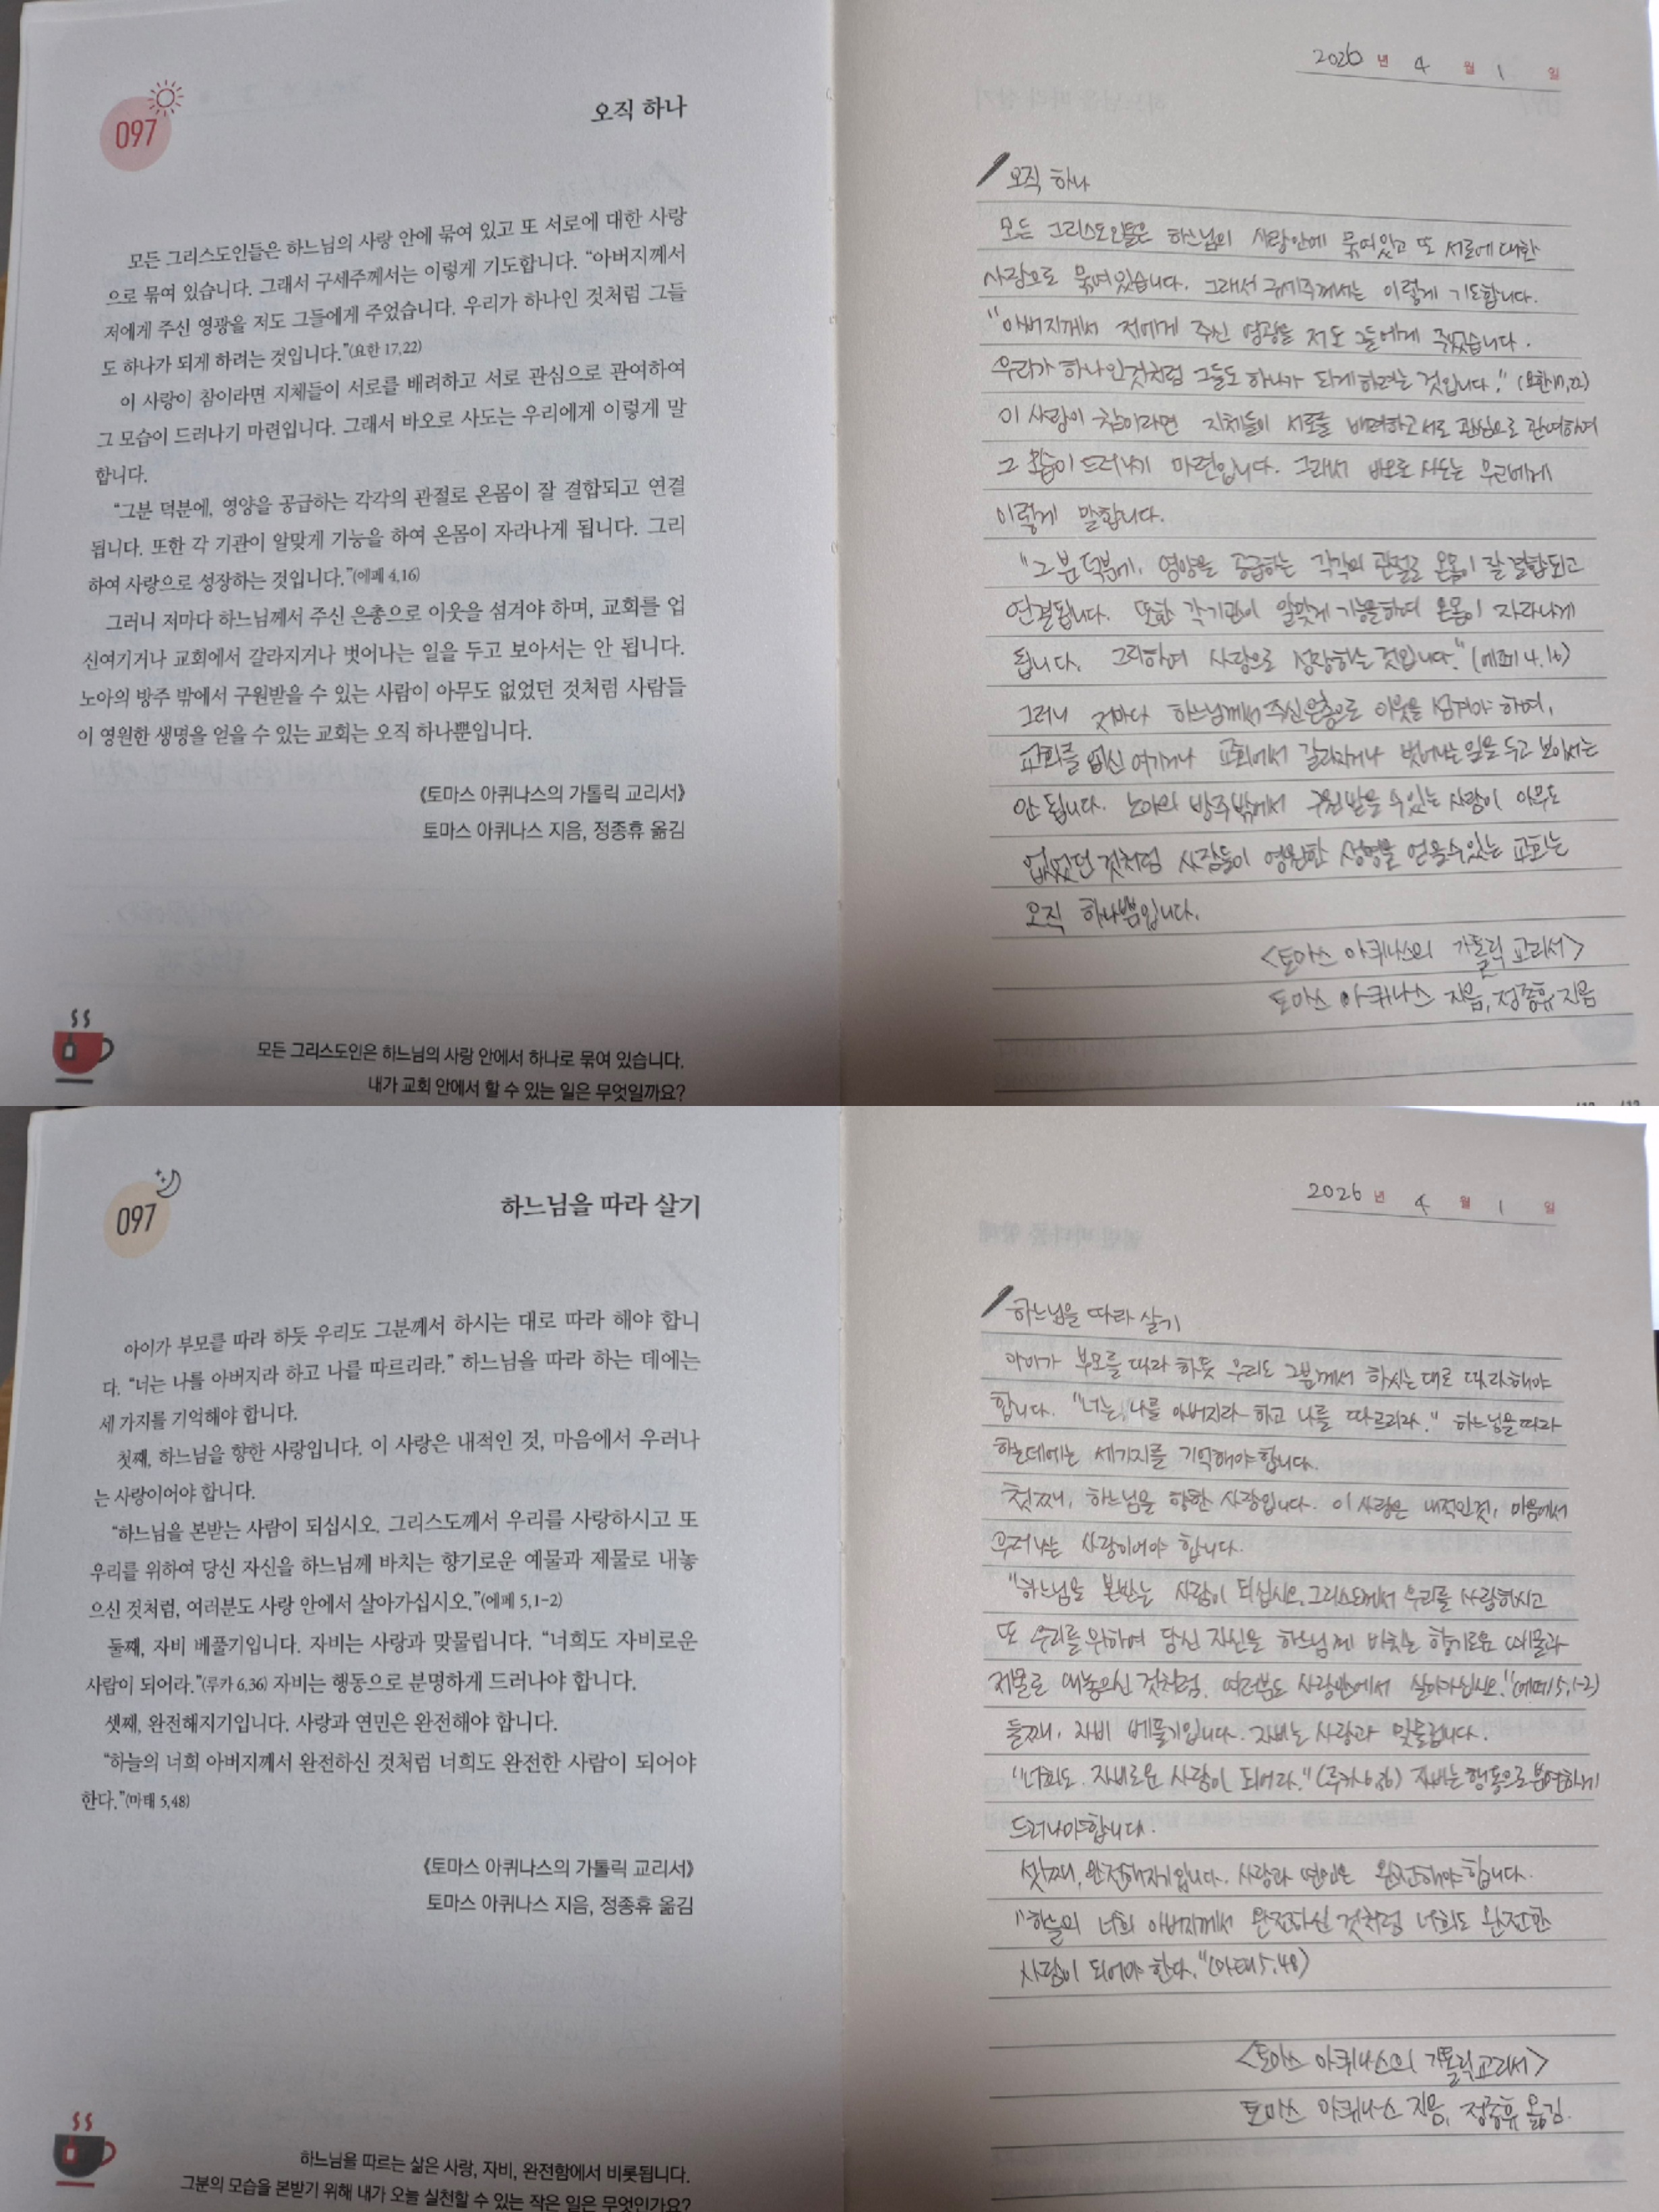 097
오직 하나
모든 그리스도인들은 하느님의 사랑 안에 묶여 있고 또 서로에 대한 사랑
으로 묶여 있습니다. 그래서 구세주께서는 이렇게 기도합니다. “아버지께서
저에게 주신 영광을 저도 그들에게 주었습니다. 우리가 하나인 것처럼 그들
도 하나가 되게 하려는 것입니다.”(요한 17,22)
이 사랑이 참이라면 지체들이 서로를 배려하고 서로 관심으로 관여하여
그 모습이 드러나기 마련입니다. 그래서 바오로 사도는 우리에게 이렇게 말
합니다.
“그분 덕분에, 영양을 공급하는 각각의 관절로 온몸이 잘 결합되고 연결
됩니다. 또한 각 기관이 알맞게 기능을 하여 온몸이 자라나게 됩니다. 그리
하여 사랑으로 성장하는 것입니다.”(에페 4,16)
그러니 저마다 하느님께서 주신 은총으로 이웃을 섬겨야 하며, 교회를 업
신여기거나 교회에서 갈라지거나 벗어나는 일을 두고 보아서는 안 됩니다.
노아의 방주 밖에서 구원받을 수 있는 사람이 아무도 없었던 것처럼 사람들
이 영원한 생명을 얻을 수 있는 교회는 오직 하나뿐입니다.
《토마스 아퀴나스의 가톨릭 교리서》
토마스 아퀴나스 지음, 정종휴 옮김
모든 그리스도인은 하느님의 사랑 안에서 하나로 묶여 있습니다.
내가 교회 안에서 할 수 있는 일은 무엇일까요?
2026 년 4 월 1 일
오직 하나
모든 그리스도인들은 하느님의 사랑안에 묶여있고 또 서로에 대한
사랑으로 묶여있습니다. 그래서 구세주께서는 이렇게 기도합니다.
"아버지께서 저에게 주신 영광을 저도 그들에게 주었습니다.
우리가 하나인것처럼 그들도 하나가 되게 하려는 것입니다." (요한17,22)
이 사랑이 참이라면 지체들이 서로를 배려하고 서로 관심으로 관여하여
그 모습이 드러나기 마련입니다. 그래서 바오로 사도는 우리에게
이렇게 말합니다.
"그분 덕분에, 영양을 공급하는 각각의 관절로 온몸이 잘 결합되고
연결됩니다. 또한 각기관이 알맞게 기능을하여 온몸이 자라나게
됩니다. 그리하여 사랑으로 성장하는 것입니다." (에페 4,16)
그러니 저마다 하느님께서 주신은총으로 이웃을 섬겨야 하며,
교회를 업신 여기거나 교회에서 갈라지거나 벗어나는 일을 두고 보아서는
안 됩니다. 노아의 방주밖에서 구원받을 수 있는 사람이 아무도
없었던 것처럼 사람들이 영원한 생명을 얻을 수 있는 교회는
오직 하나뿐입니다.
<토마스 아퀴나스의 가톨릭 교리서>
토마스 아퀴나스 지음, 정종휴 지음
097
하느님을 따라 살기
아이가 부모를 따라 하듯 우리도 그분께서 하시는 대로 따라 해야 합니
다. “너는 나를 아버지라 하고 나를 따르리라.” 하느님을 따라 하는 데에는
세 가지를 기억해야 합니다.
첫째, 하느님을 향한 사랑입니다. 이 사랑은 내적인 것, 마음에서 우러나
는 사랑이어야 합니다.
“하느님을 본받는 사람이 되십시오. 그리스도께서 우리를 사랑하시고 또
우리를 위하여 당신 자신을 하느님께 바치는 향기로운 예물과 제물로 내놓
으신 것처럼, 여러분도 사랑 안에서 살아가십시오.”(에페 5,1-2)
둘째, 자비 베풀기입니다. 자비는 사랑과 맞물립니다. “너희도 자비로운
사람이 되어라.”(루카 6,36) 자비는 행동으로 분명하게 드러나야 합니다.
셋째, 완전해지기입니다. 사랑과 연민은 완전해야 합니다.
“하늘의 너희 아버지께서 완전하신 것처럼 너희도 완전한 사람이 되어야
한다.”(마태 5,48)
《토마스 아퀴나스의 가톨릭 교리서》
토마스 아퀴나스 지음, 정종휴 옮김
하느님을 따르는 삶은 사랑, 자비, 완전함에서 비롯됩니다.
그분의 모습을 본받기 위해 내가 오늘 실천할 수 있는 작은 일은 무엇인가요?
2026 년 4 월 1 일
하느님을 따라 살기
아이가 부모를 따라 하듯 우리도 그분께서 하시는 대로 따라해야
합니다. "너는, 나를 아버지라 하고 나를 따르리라." 하느님을 따라
하는데에는 세가지를 기억해야 합니다.
첫째, 하느님을 향한 사랑입니다. 이 사랑은 내적인것, 마음에서
우러나는 사랑이어야 합니다.
"하느님을 본받는 사람이 되십시오. 그리스도께서 우리를 사랑하시고
또 우리를 위하여 당신 자신을 하느님께 바치는 향기로운 예물과
제물로 내놓으신 것처럼, 여러분도 사랑안에서 살아가십시오."(에페 5,1-2)
둘째, 자비 베풀기입니다. 자비는 사랑과 맞물립니다.
"너희도 자비로운 사람이 되어라."(루카 6,36) 자비는 행동으로 분명하게
드러나야합니다.
셋째, 완전해지기입니다. 사랑과 연민은 완전해야 합니다.
"하늘의 너희 아버지께서 완전하신 것처럼 너희도 완전한
사람이 되어야 한다."(마태5,48)
<토마스 아퀴나스의 가톨릭교리서>
토마스 아퀴나스 지음, 정종휴 옮김.